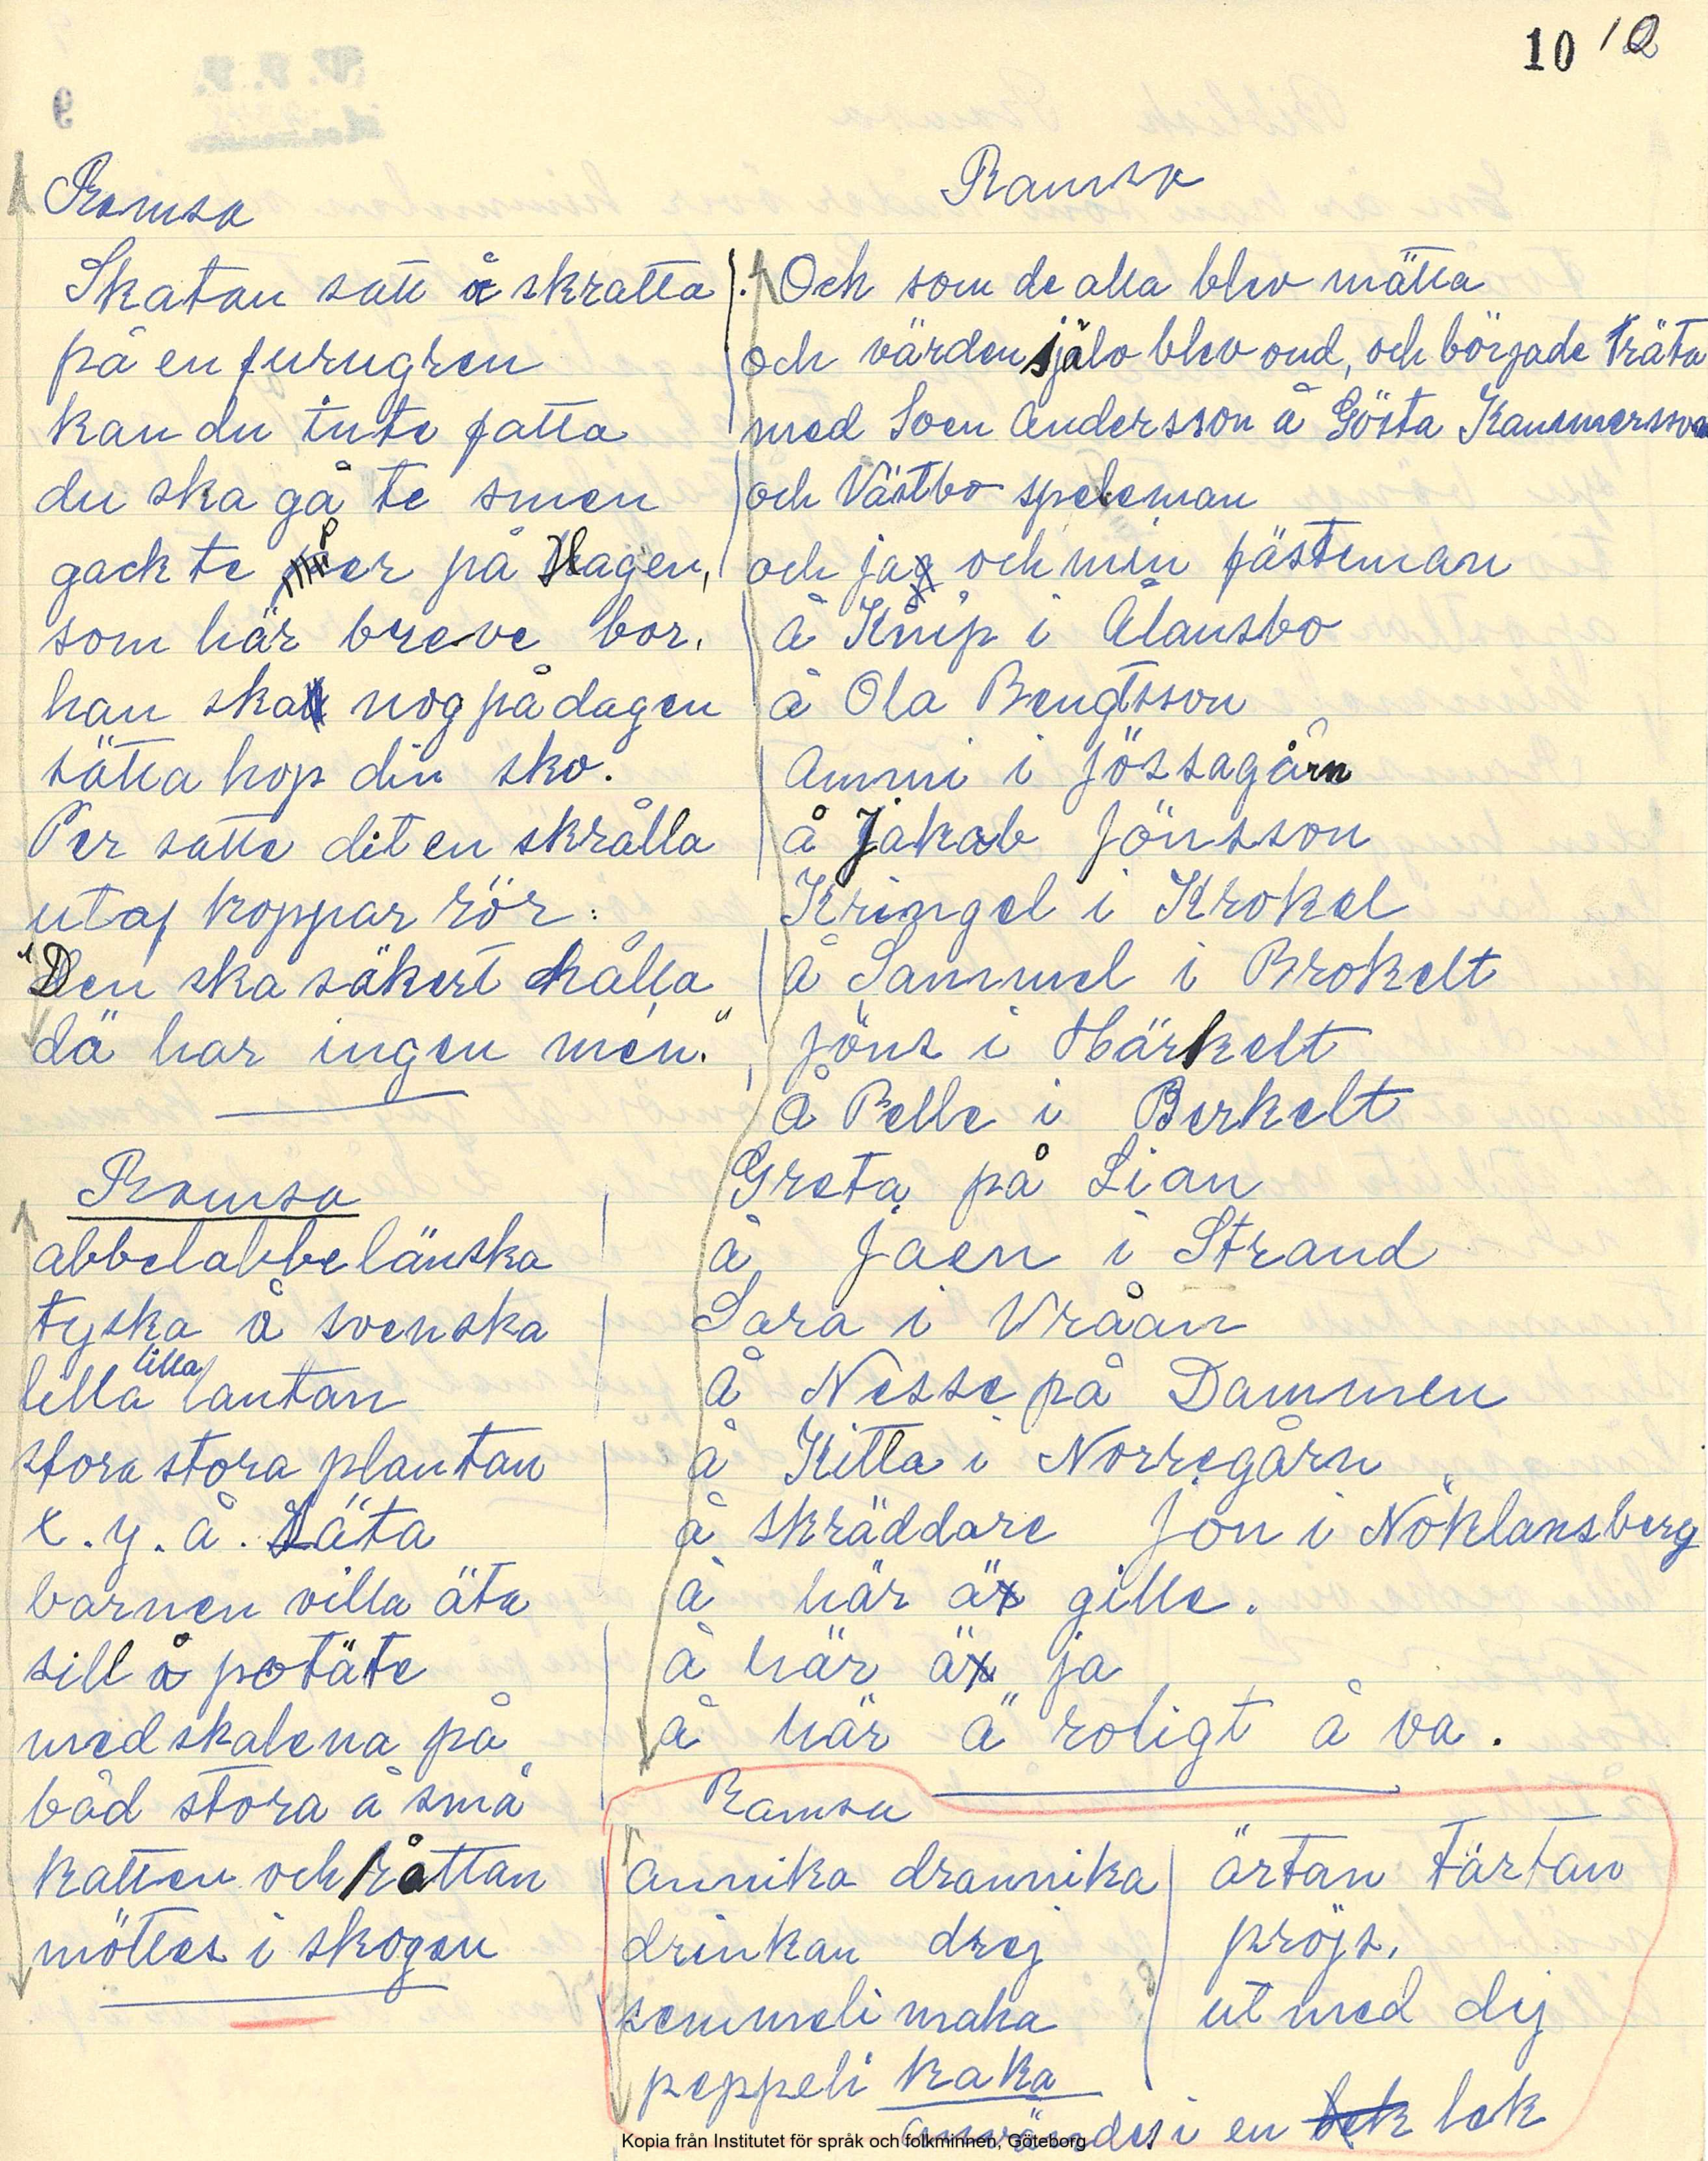 10 10
Ramsa
Skatan satt å skratta
på en furugren
kan du inte fatta
du ska gå te smen
gack te Per på Hagen,
som här breve bor.
han ska nog på dagen
sätta hop din sko.
Per satte dit en skrålla
utaf koppar rör:
"Den ska säkert hålla
dä har ingen men."
Ramsa
abbelabbelänska
tyska å svenska
lilla lilla lantan
stora stora plantan
x. y. å. Zäta
barnen villa äta
sill å potäte
med skalena på
båd stora å små
katten och råttan
möttes i skogen
Ramsa
Och som de alla blev mätta
och värden själv blev ond, och började träta
med Sven Andersson å Gösta Kammersson
och Västbo speleman
och ja och min fästeman
å Knip i Ålansbo
å Ola Bengtsson
Anni i Jössagårn
å Jakob Jönsson
Kringel i Krokel
å Samuel i Brokelt
Jöns i Härkelt
å Pelle i Berkelt
Greta på Lian
å Jaen i Strand
Sara i Vråan
å Nesse på Dammen
å Kitta i Norregårn
å skräddare Jon i Nöklansberg
å här ä gille.
å här ä ja
å här ä roligt å va.
Ramsa
Annika drannika
drinkan drej
semmeli maka
peppeli kaka
ärtan tärtan
pröjs,
ut med dej
användes i en lek
Kopia från Institutet för språk och folkminnen, Göteborg